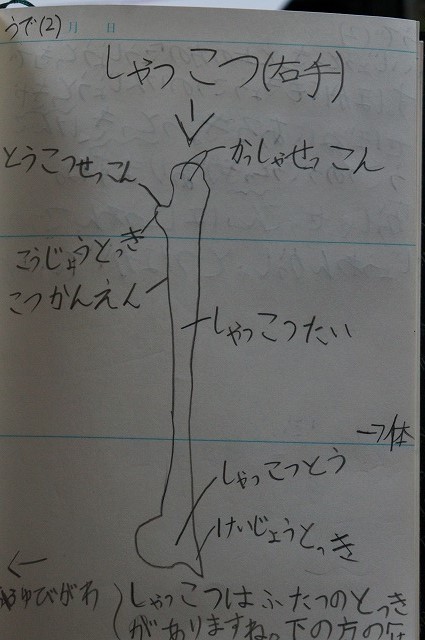 うで(2) 月 日
しゃっこつ(右手)
かっしゃせっこん
とうこつせっこん
こうじょうとっき
こつかんえん
しゃっこつたい
→体
しゃっこつとう
けいじょうとっき
←
ゆびがわ
しゃっこつはふたつのとっき
がありますねっ下の方の